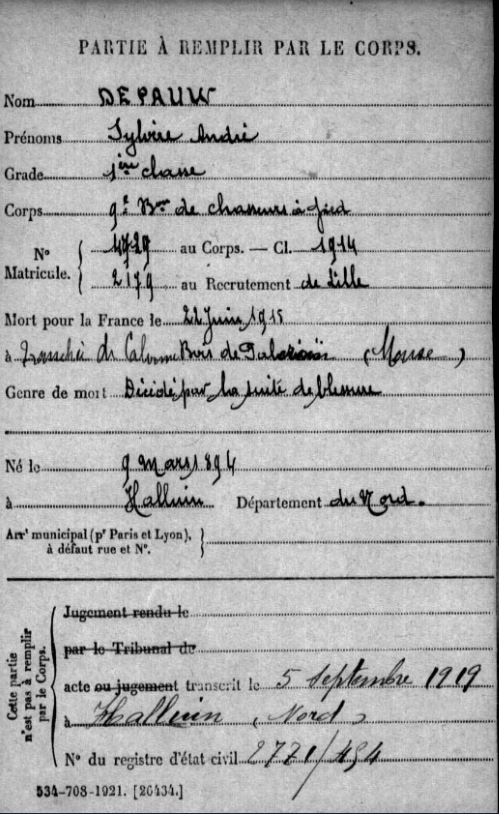 PARTIE À REMPLIR PAR LE CORPS.
Nom DEPAUW
Prénoms Sylvère André
Grade 1ère classe
Corps 9e Bon de chasseurs à pied
No Matricule. 4729 au Corps. — Cl. 1914
2179 au Recrutement de Lille
Mort pour la France le 22 Juin 1915
à Tranchée de Calonne Bois de (Meuse)
Genre de mort Décédé par la suite de blessure
Né le 9 mars 1894
à Halluin Département du Nord.
Arrt municipal (pr Paris et Lyon),
à défaut rue et No.
Cette partie
n'est pas à remplir
par le Corps.
Jugement rendu le
par le Tribunal de
acte ou jugement transcrit le 5 Septembre 1919
à Halluin (Nord)
No du registre d'état civil 2771/494
534-708-1921. [26434.]